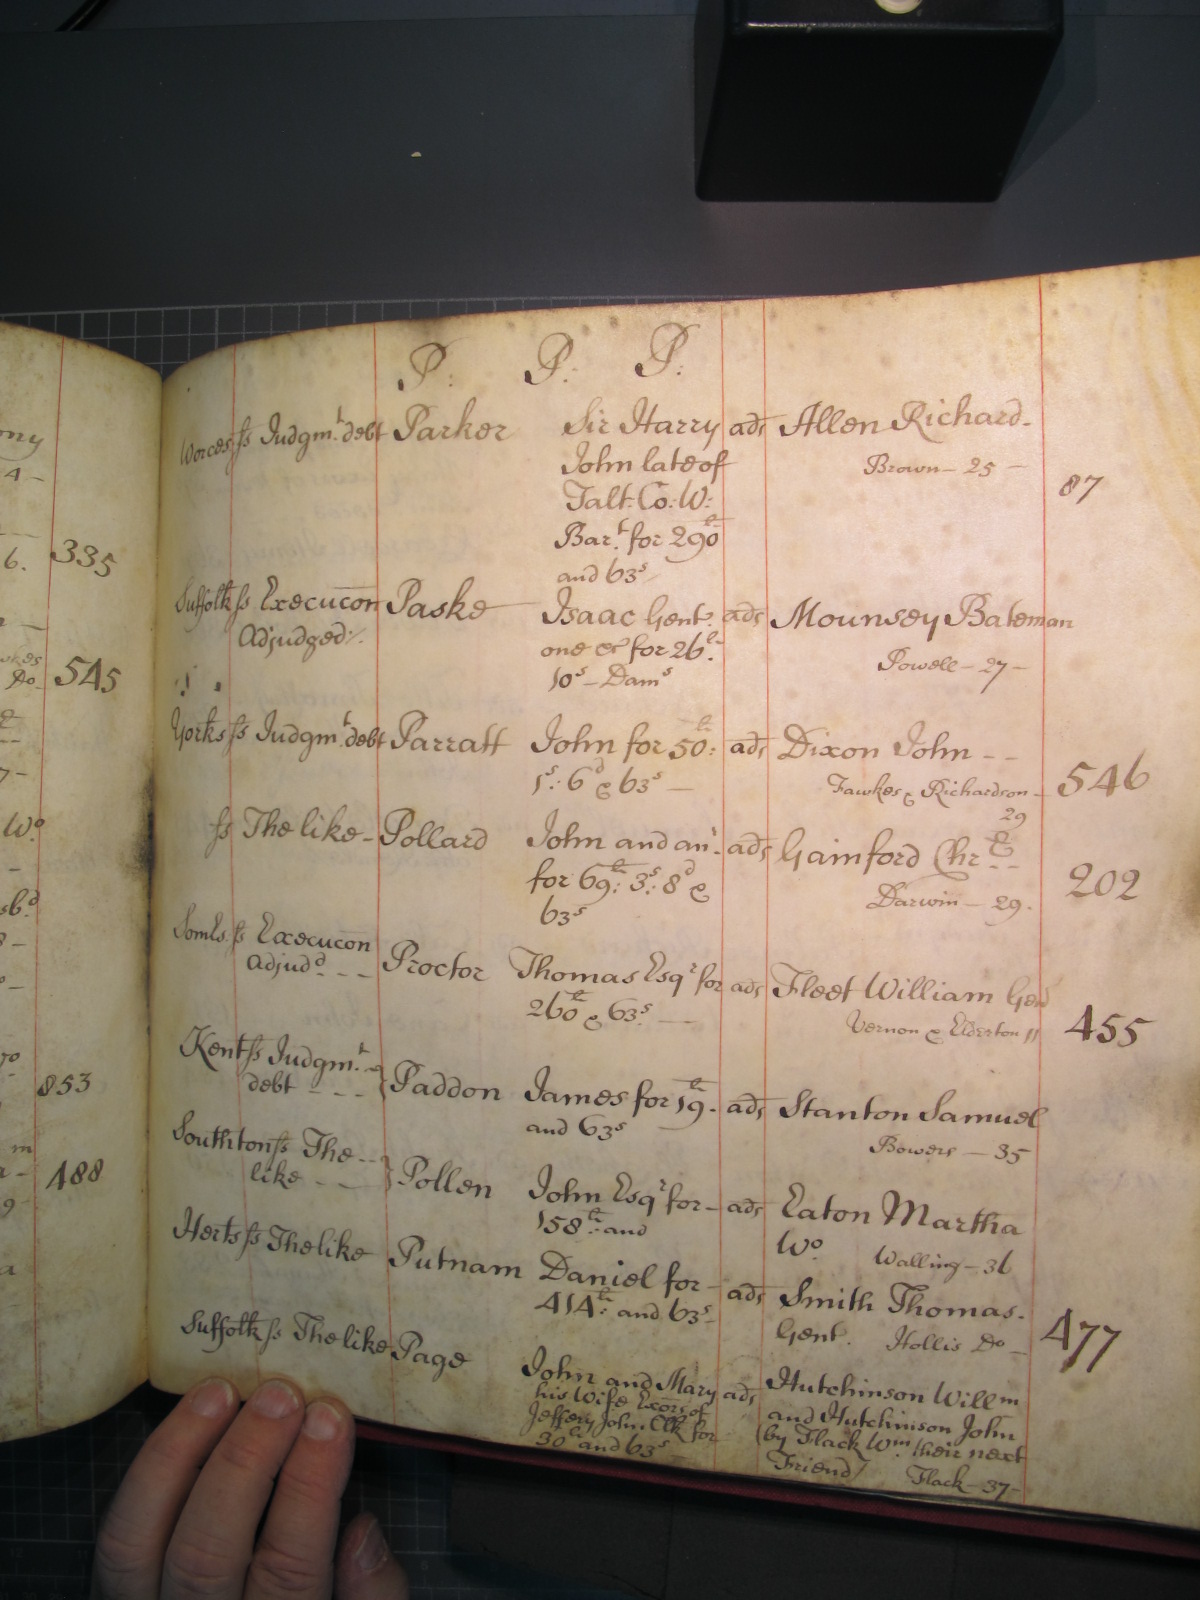 P: P. P.
Worces ss Judgm.t debt Parker Sir Harry ads Allen Richard.
John late of Brown - 25 -
Talt: Co: W: 87
Bar.t for 290l
and 63s
Suffolk ss Execucon Paske Isaac Gent. ads Mounsey Bateman
Adjudged:. one &c for 26l. Powell - 27 -
10s - Dams
Yorks ss Judgm.t debt Parratt John for 50l: ads Dixon John - -
1s: 6d & 63s - Fawkes & Richardson - 546
29
ss The like - Pollard John and anr. ads Gainford Chr
for 69l: 3s: 8d & Darwin - 29. 202
63s
Somls ss Execucon Proctor Thomas Esqr for ads Fleet William Gen
adjudd - - - 260l & 63s. - Vernon & Elderton 11 455
Kent ss Judgm.t Paddon James for 19l. ads Stanton Samuel
debt - - - and 63s Bowers - 35
Southton ss The - - Pollen John Esqr for - ads Eaton Martha
like - - 158l: and Wo Walling - 36
Herts ss The like Putnam Daniel for - ads Smith Thomas.
414l: and 63s- Gent. Hollis Do - 477
Suffolk ss The like Page John and Mary ads Hutchinson Willm
his Wife Exors of and Hutchinson John
Jeffery John Clk for (by Flack Wm their next
30l and 63s Friend) Flack - 37 -
335
545
853
488